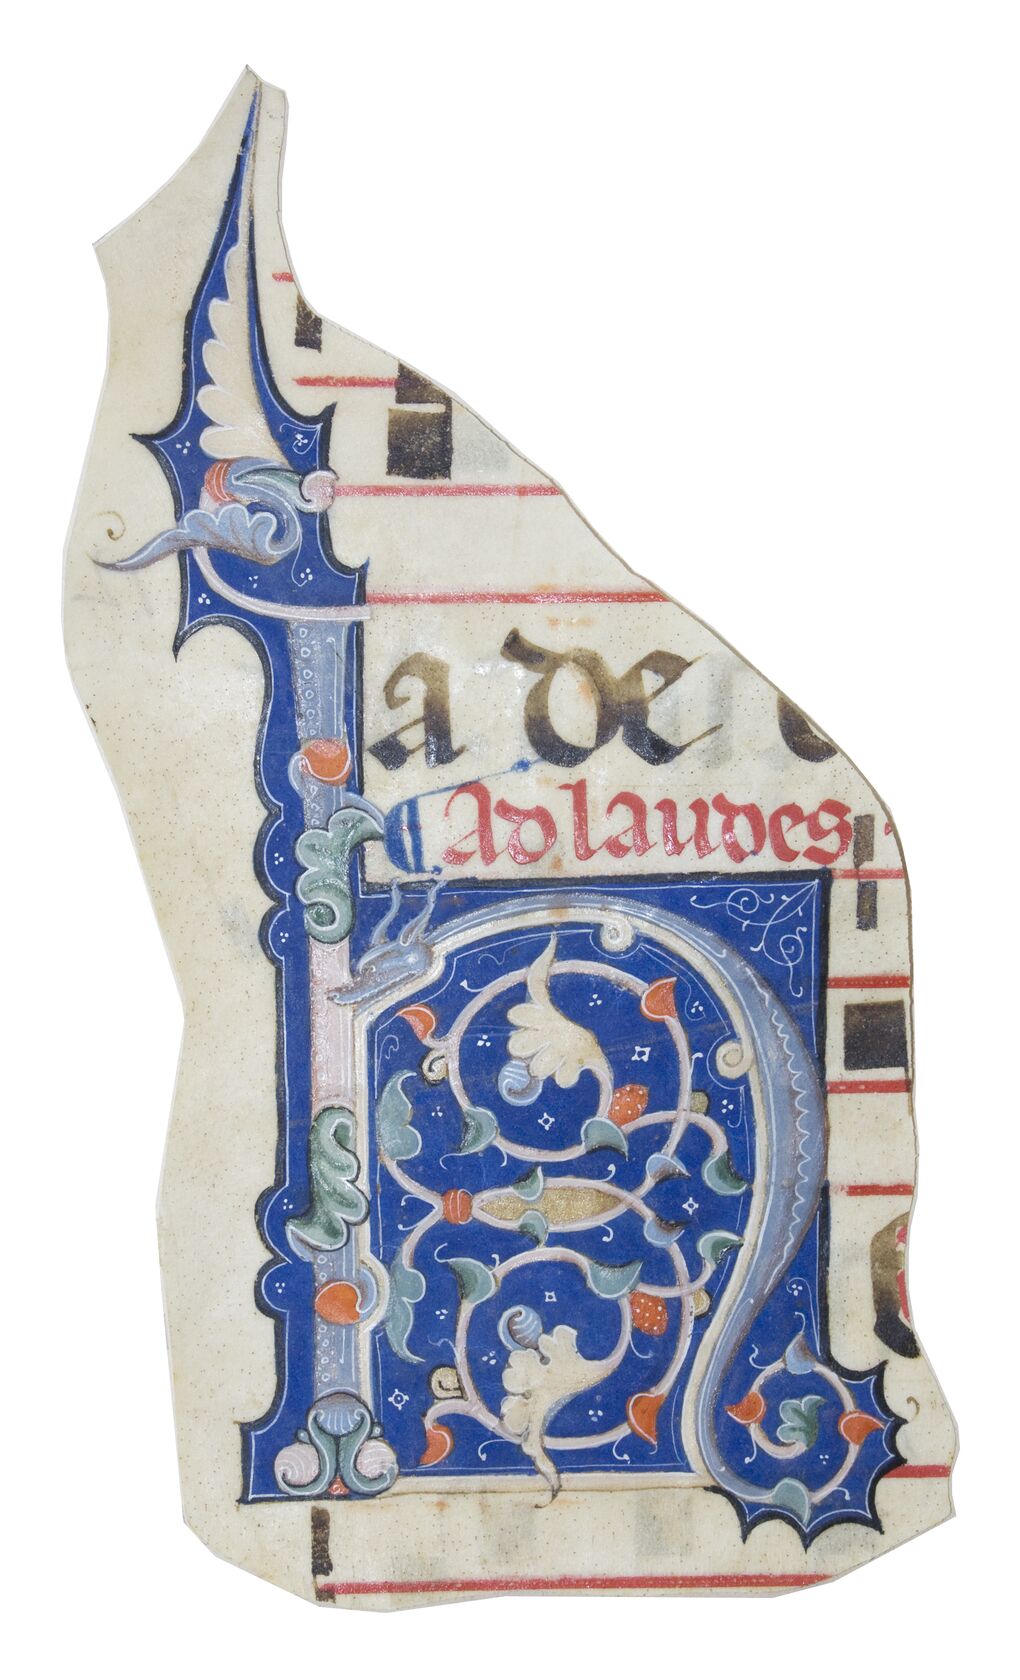 a de
Ad laudes
H